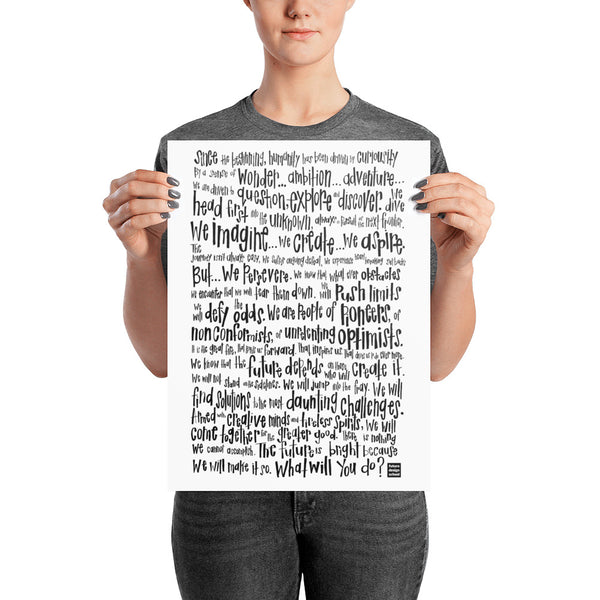 Since the beginning, humanity has been driven by curiosity
By a sense of wonder... ambition... adventure...
We are driven to question, explore and discover. We dive
head first into the unknown, always in pursuit of the next frontier.
We imagine... We create... We aspire.
The journey isn't always easy. We suffer ongoing defeat. We experience heart breaking set backs
But... We Persevere. We know that what ever obstacles
we encounter that we will tear them down. We will Push limits
We will defy the odds. We are People of Pioneers, of
nonconformists, of unrelenting optimists.
It is the great fire, that pushes us forward. That inspires us. That drives us
We know that the future depends on those who will create it.
We will not stand on the sidelines. We will jump into the fray. We will
find solutions to the most daunting challenges.
Armed with creative minds and tireless spirits, We will
come together for the greater good. There is nothing
we cannot accomplish. The future is bright because
We will make it so. What will You do?
future
design
school